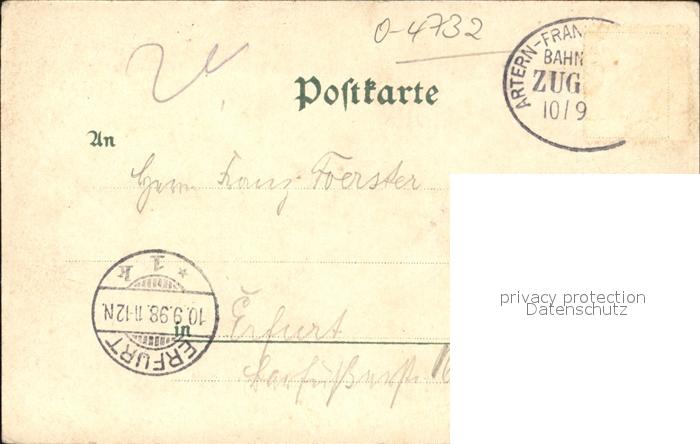 0-4732
ARTERN-FRAN
BAHN
ZUG
10/9
Postkarte
An
Herrn Franz Foerster
privacy protection
Datenschutz
* 1 k
10.9.98. 11-12N.
ERFURT
in Erfurt
Barfüßerstr. 16